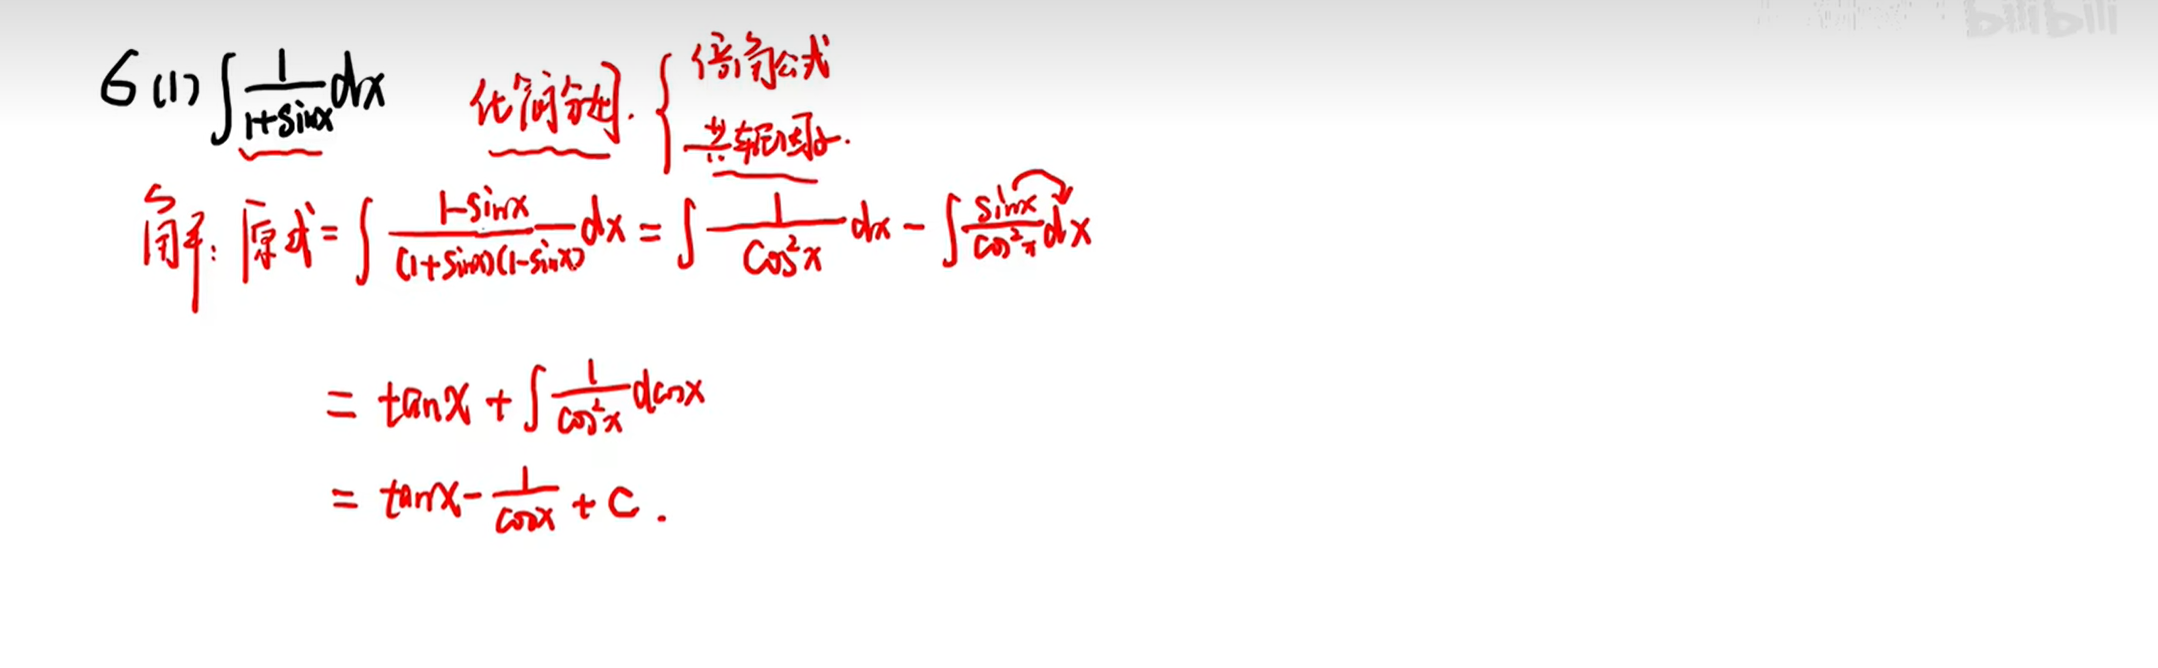 6 (1) ∫ 1/(1+sinx) dx 化简分母. { 倍角公式
共轭因子.
解: 原式 = ∫ (1-sinx)/((1+sinx)(1-sinx)) dx = ∫ 1/cos²x dx - ∫ sinx/cos²x dx
= tanx + ∫ 1/cos²x dcosx
= tanx - 1/cosx + C.
bilibili